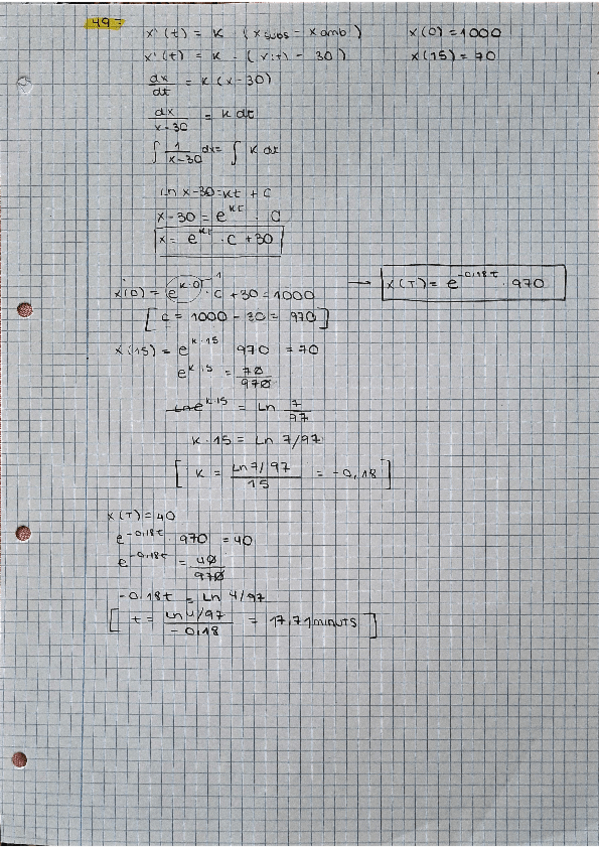 49-
x'(t) = K (xsubs - xamb)    x(0) = 1000
x'(t) = K · (x(t) - 30)    x(15) = 70
dx/dt = K (x-30)
dx/x-30 = K dt
∫ 1/x-30 dx = ∫ K dt
ln x-30 = Kt + C
x-30 = e^Kt · C
x = e^Kt · C + 30
x(0) = e^K·0 · C + 30 = 1000    1    → x(T) = e^-0,18t · 970
[ C = 1000 - 30 = 970 ]
x(15) = e^K·15 970 = 70
e^K·15 = 70/970
ln e^K·15 = Ln 7/97
K·15 = Ln 7/97
[ K = Ln 7/97 / 15 = -0,18 ]
x(T) = 40
e^-0,18t · 970 = 40
e^-0,18t = 40/970
-0.18t = Ln 4/97
[ t = Ln 4/97 / -0,18 = 17,71 minuts ]